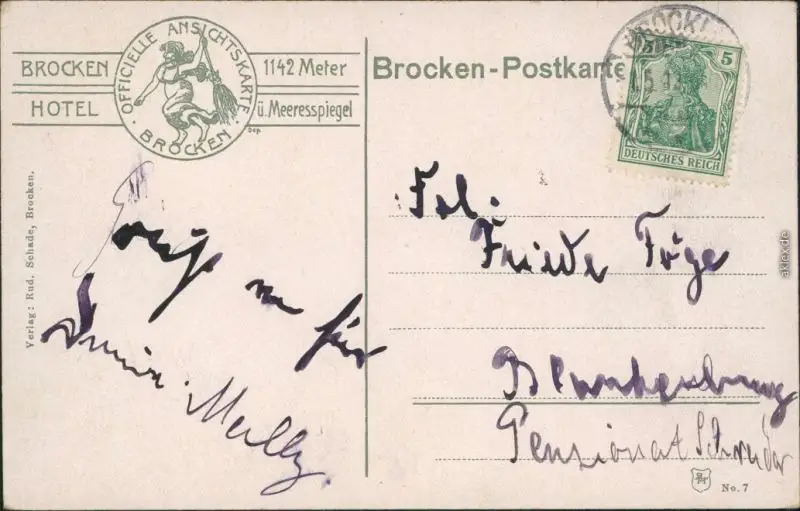 BROCKEN
HOTEL
OFFICIELLE ANSICHTSKARTE
BROCKEN
Dep.
1142 Meter
ü. Meeresspiegel
Brocken-Postkarte
BROCKEN
5
DEUTSCHES REICH
Verlag: Rud. Schade, Brocken.
Frl.
Friede Föge
Blankenburg
Pensionat Schrader
Gruß
für
Melly.
No. 7
akpool.de